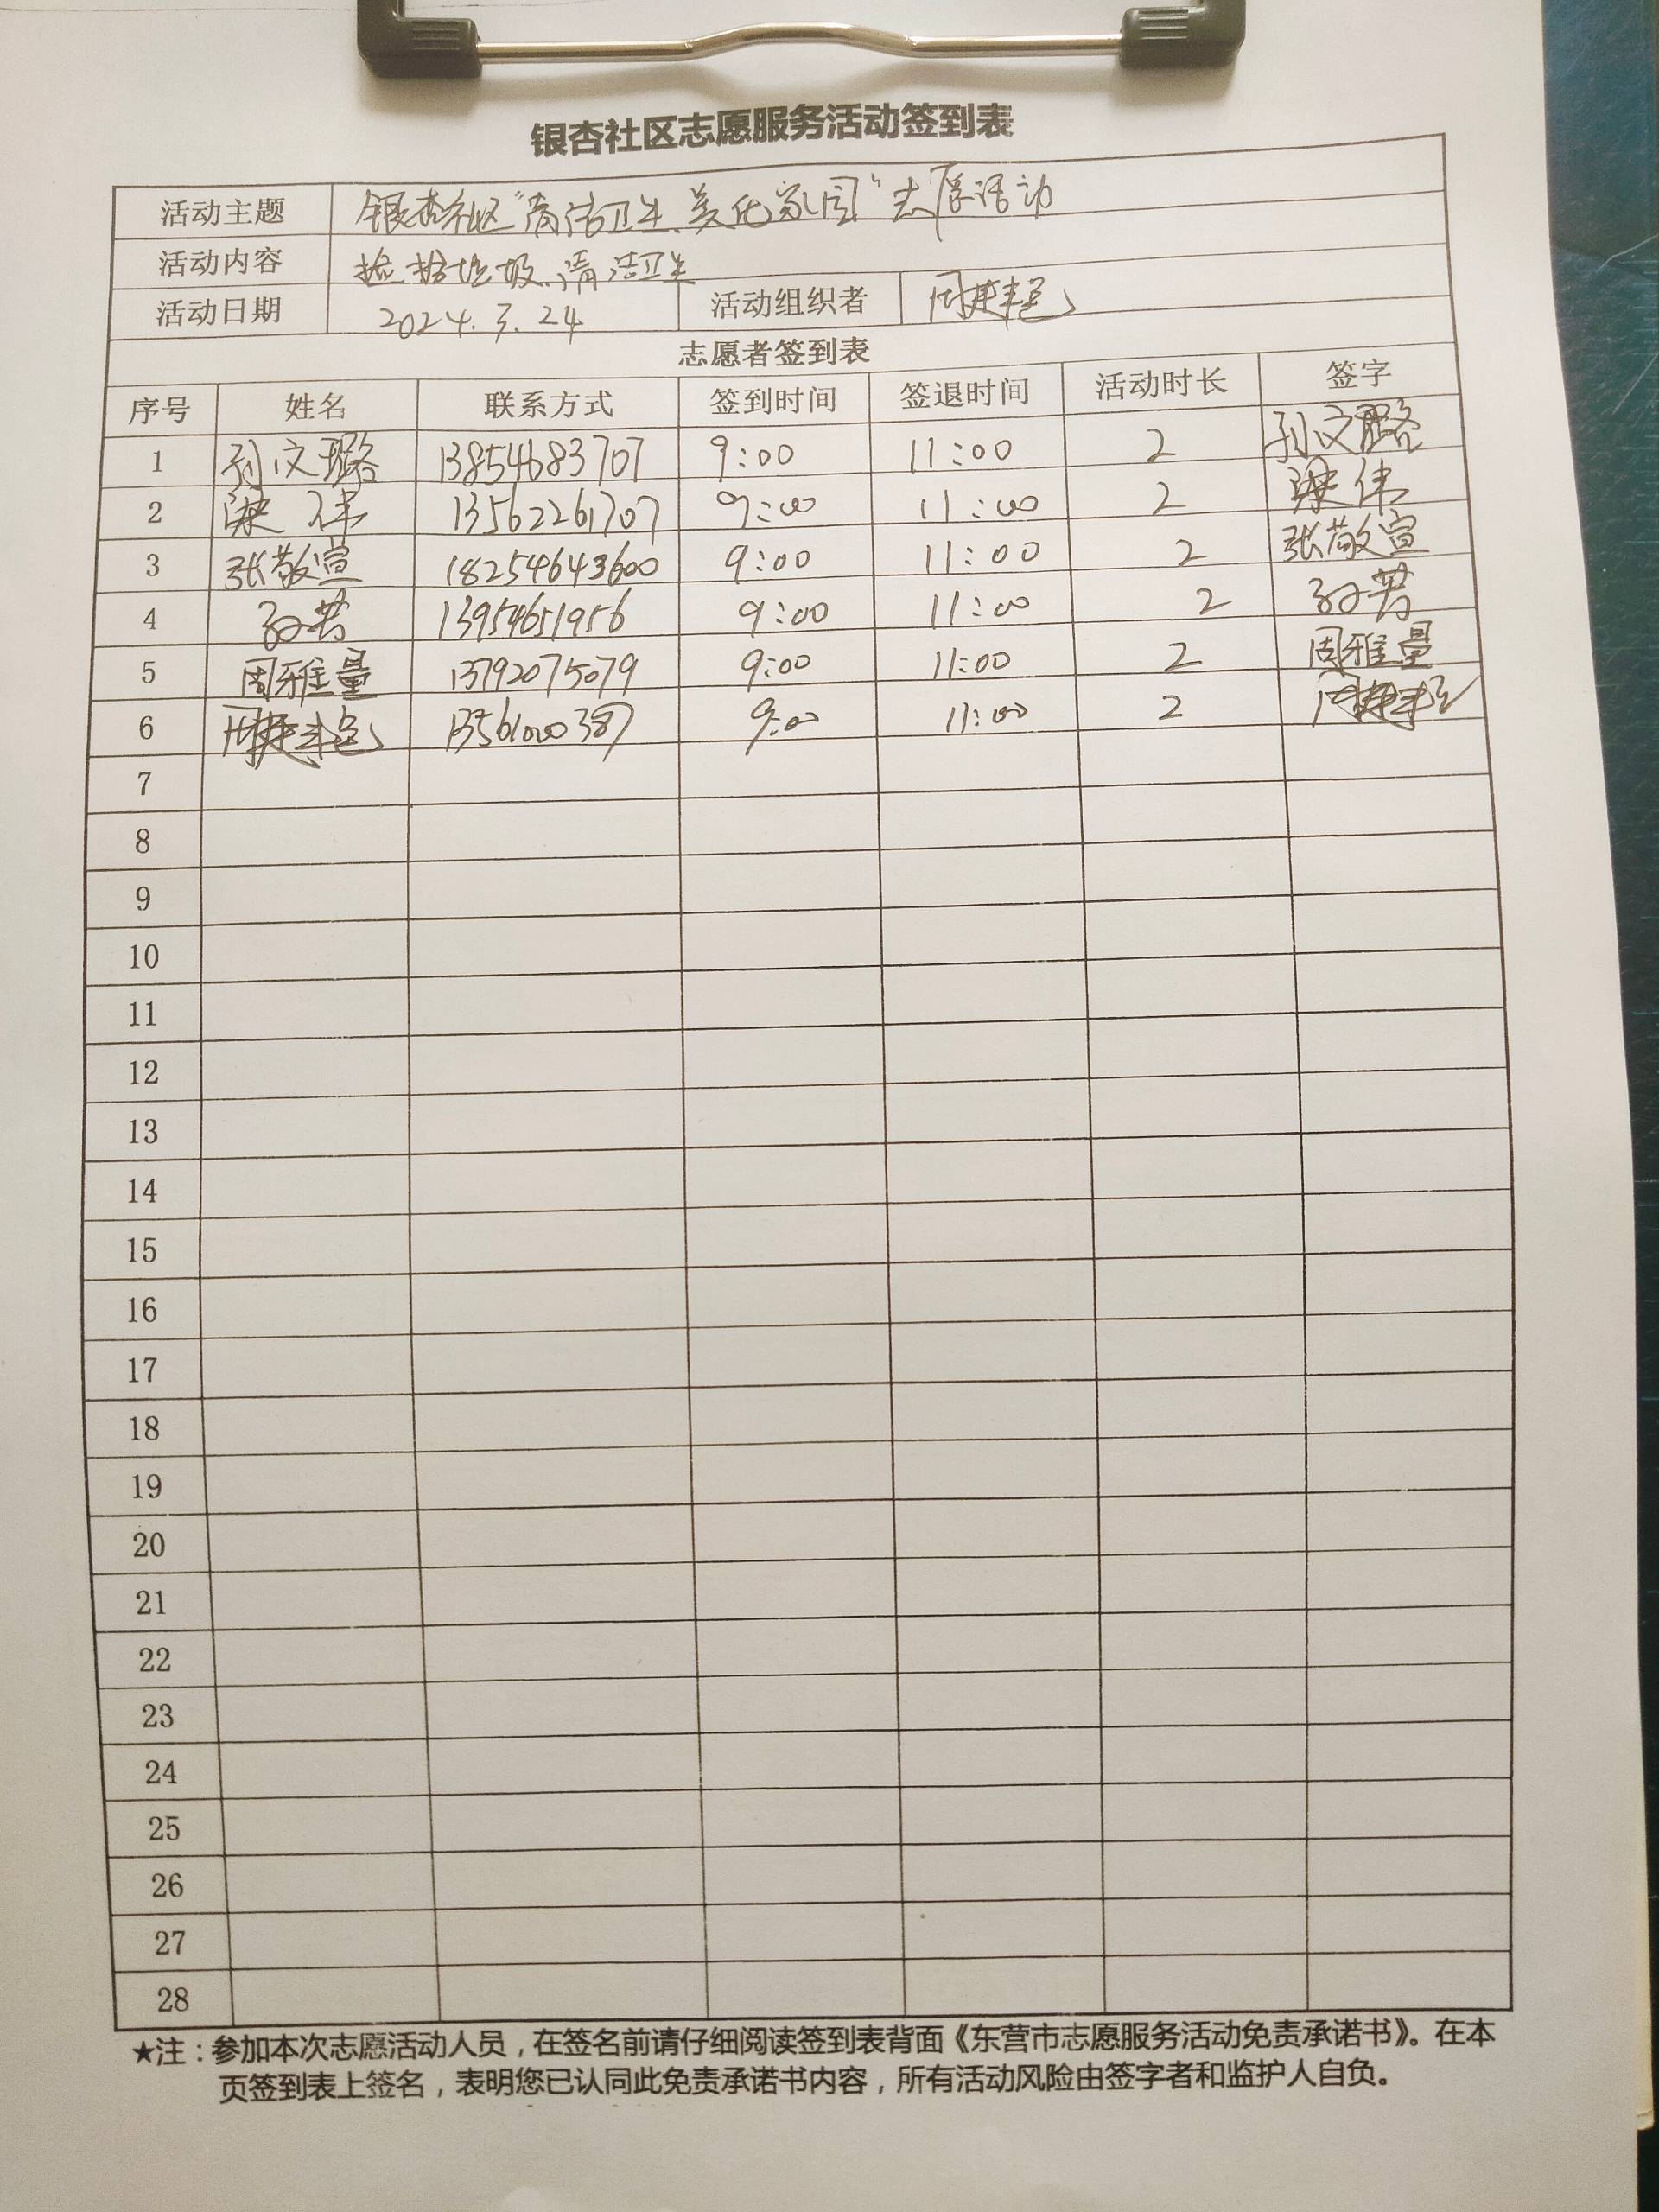 银杏社区志愿服务活动签到表
活动主题 银杏社区“清洁卫生、美化家园”志愿活动
活动内容 捡拾垃圾、清洁卫生
活动日期 2024.3.24 活动组织者
志愿者签到表
序号 姓名 联系方式 签到时间 签退时间 活动时长 签字
1 孙文璐 13854683707 9:00 11:00 2 孙文璐
2 梁伟 13562261707 9:00 11:00 2 梁伟
3 张敬宣 18254643600 9:00 11:00 2 张敬宣
4 13954651956 9:00 11:00 2
5 周雅量 13792075079 9:00 11:00 2 周雅量
6 13561000387 9:00 11:00 2
7
8
9
10
11
12
13
14
15
16
17
18
19
20
21
22
23
24
25
26
27
28
★注：参加本次志愿活动人员，在签名前请仔细阅读签到表背面《东营市志愿服务活动免责承诺书》。在本
页签到表上签名，表明您已认同此免责承诺书内容，所有活动风险由签字者和监护人自负。